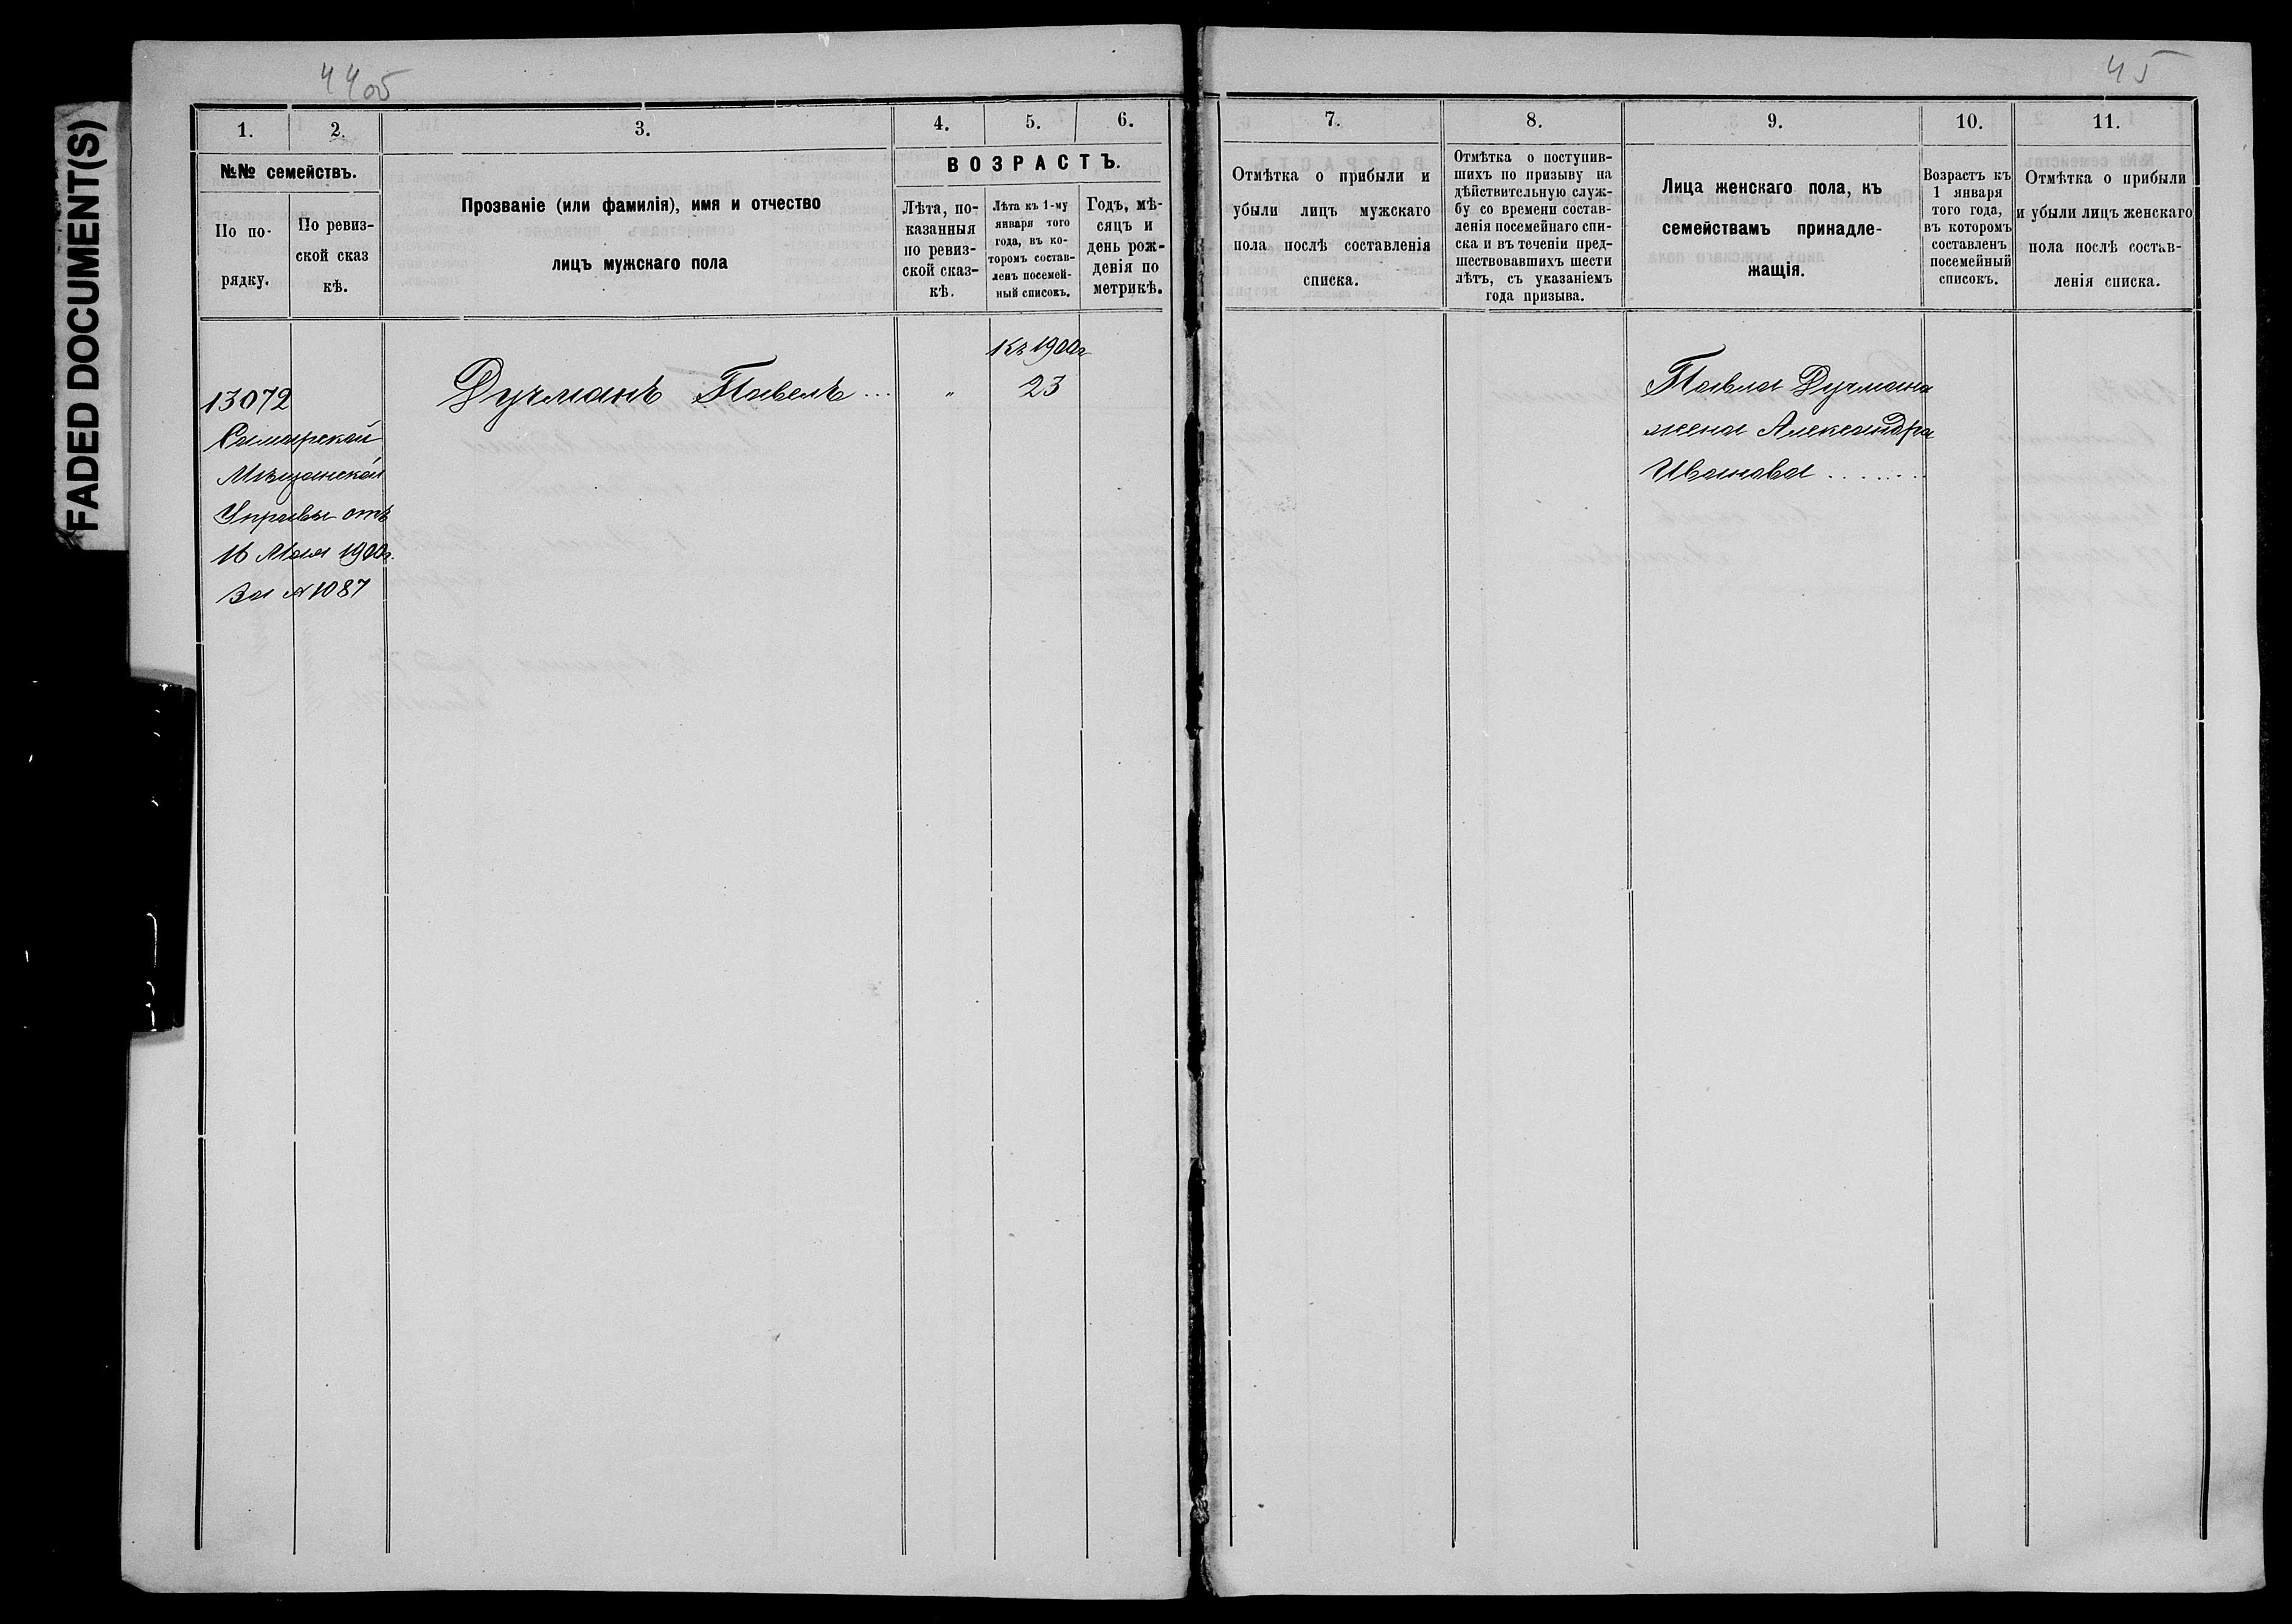 FADED DOCUMENT(S)
44об
1. 2. 3. 4. 5. 6.
№№ семействъ.
По по-
рядку.
По ревиз-
ской сказ
кѣ.
Прозваніе (или фамилія), имя и отчество
лицъ мужскаго пола
ВОЗРАСТЪ.
Лѣта, по-
казанныя
по ревиз-
ской сказ-
кѣ.
Лѣта къ 1-му
января того
года, въ ко-
торомъ состав-
ленъ посемей-
ный списокъ.
Годъ, мѣ-
сяцъ и
день рож-
денія по
метрикѣ.
Къ 1900г
13072 Дучманъ Павелъ ... „ 23
Самарской
Мѣщанской
Управы отъ
16 Мая 1900г.
За № 1087
45
7. 8. 9. 10. 11.
Отмѣтка о прибыли и
убыли лицъ мужскаго
пола послѣ составленія
списка.
Отмѣтка о поступив-
шихъ по призыву на
дѣйствительную служ-
бу со времени состав-
ленія посемейнаго спи-
ска и въ теченіи пред-
шествовавшихъ шести
лѣтъ, съ указаніемъ
года призыва.
Лица женскаго пола, къ
семействамъ принадле-
жащія.
Возрастъ къ
1 января
того года,
въ которомъ
составленъ
посемейный
списокъ.
Отмѣтка о прибыли
и убыли лицъ женскаго
пола послѣ состав-
ленія списка.
Павла Дучмана
жена Александра
Иванова ........